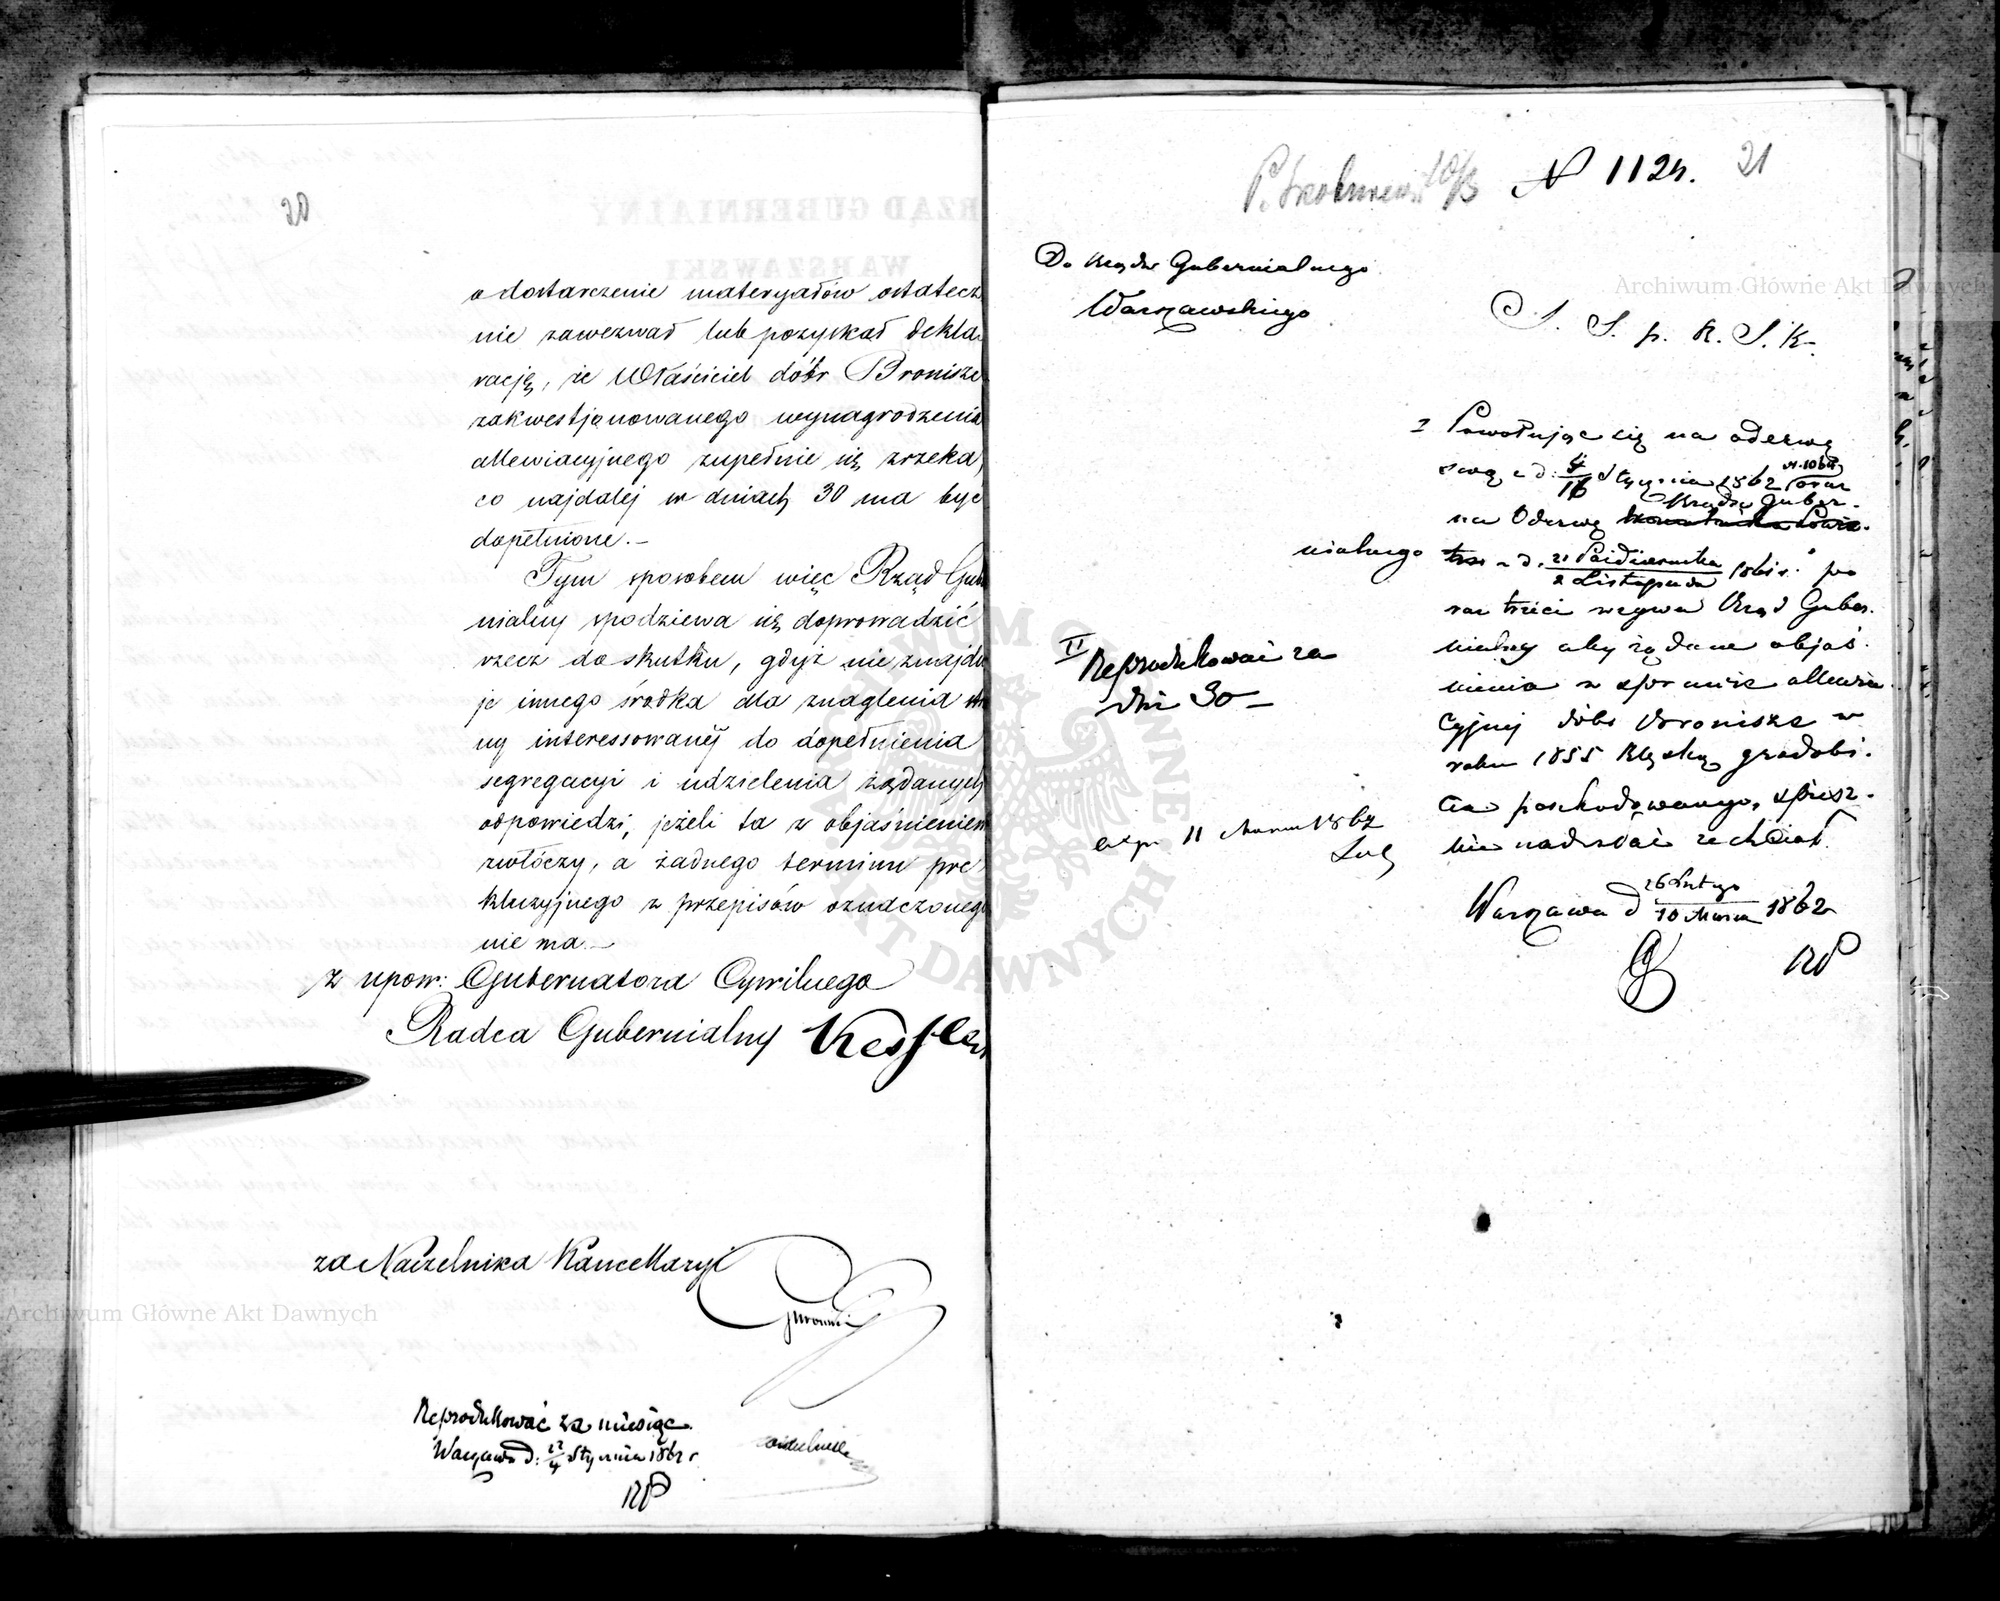 20
o dostarczenie materyałów ostatecz
nie zawezwał lub pozyskał dekla
rację, że Właściciel dóbr Bronisze
zakwestjonowanego wynagrodzenia
allewiacyjnego zupełnie się zrzeka,
co najdalej w dniach 30 ma być
dopełnione.-
Tym sposobem więc Rząd Gub
nialny spodziewa się doprowadzić
rzecz do skutku, gdyż nie znajdu
je innego środka dla znaglenia stro
ny interessowanéj do dopełnienia
segregacyi i udzielenia żądanych
odpowiedzi, jeżeli ta z objaśnieniem
zwłóczy, a żadnego terminu pre
kluzyjnego z przepisów oznaczonego
nie ma.-
z upow: Gubernatora Cywilnego
Radca Gubernialny Kessler
za Naczelnika Kancellaryi
Reprodukować za miesiąc
Warszawa d. Stycznia 1862 r
RP
Archiwum Główne Akt Dawnych
N 1124. 21
Do Rządu Gubernialnego
Warszawskiego
S. p. K. S. K.
I Powołując się na odezwę
swą z d. 4/16 Stycznia 1862 oraz
Rządu Guber-
na Odezwę
nialnego z d. 21 Października / 2 Listopada 1861 r. po
raz trzeci wzywa Rząd Guber.
nialny aby żądane objaś.
nienia w sporze allewia
cyjnej dóbr Bronisze w
roku 1855 klęską gradobi.
cia poszkodowanego, spiesz-
nie nadesłać zechciał.
Warszawa d 26 Lutego / 10 Marca 1862
RP
II
Reprodukować za
dni 30 -
exp. 11 Marca 1862
Archiwum Główne Akt Dawnych
ARCHIWUM GŁÓWNE AKT DAWNYCH